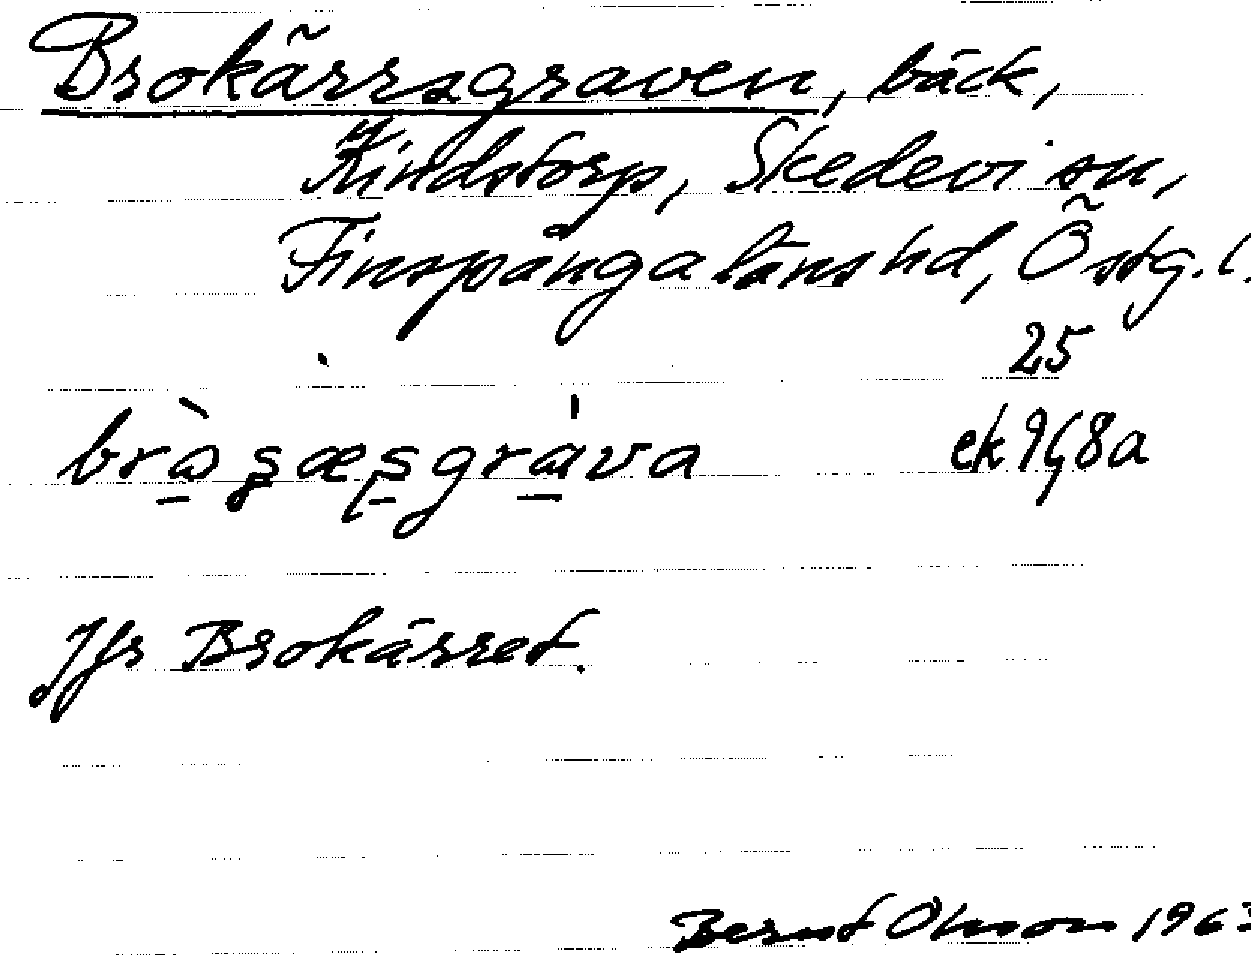 Brokärrsgraven, bäck,
Kindstorp, Skedevi sn,
Finspånga läns hd, Östg. l.
25
ek 9G8a
Jfr Brokärret.
Bernt Olsson 1963